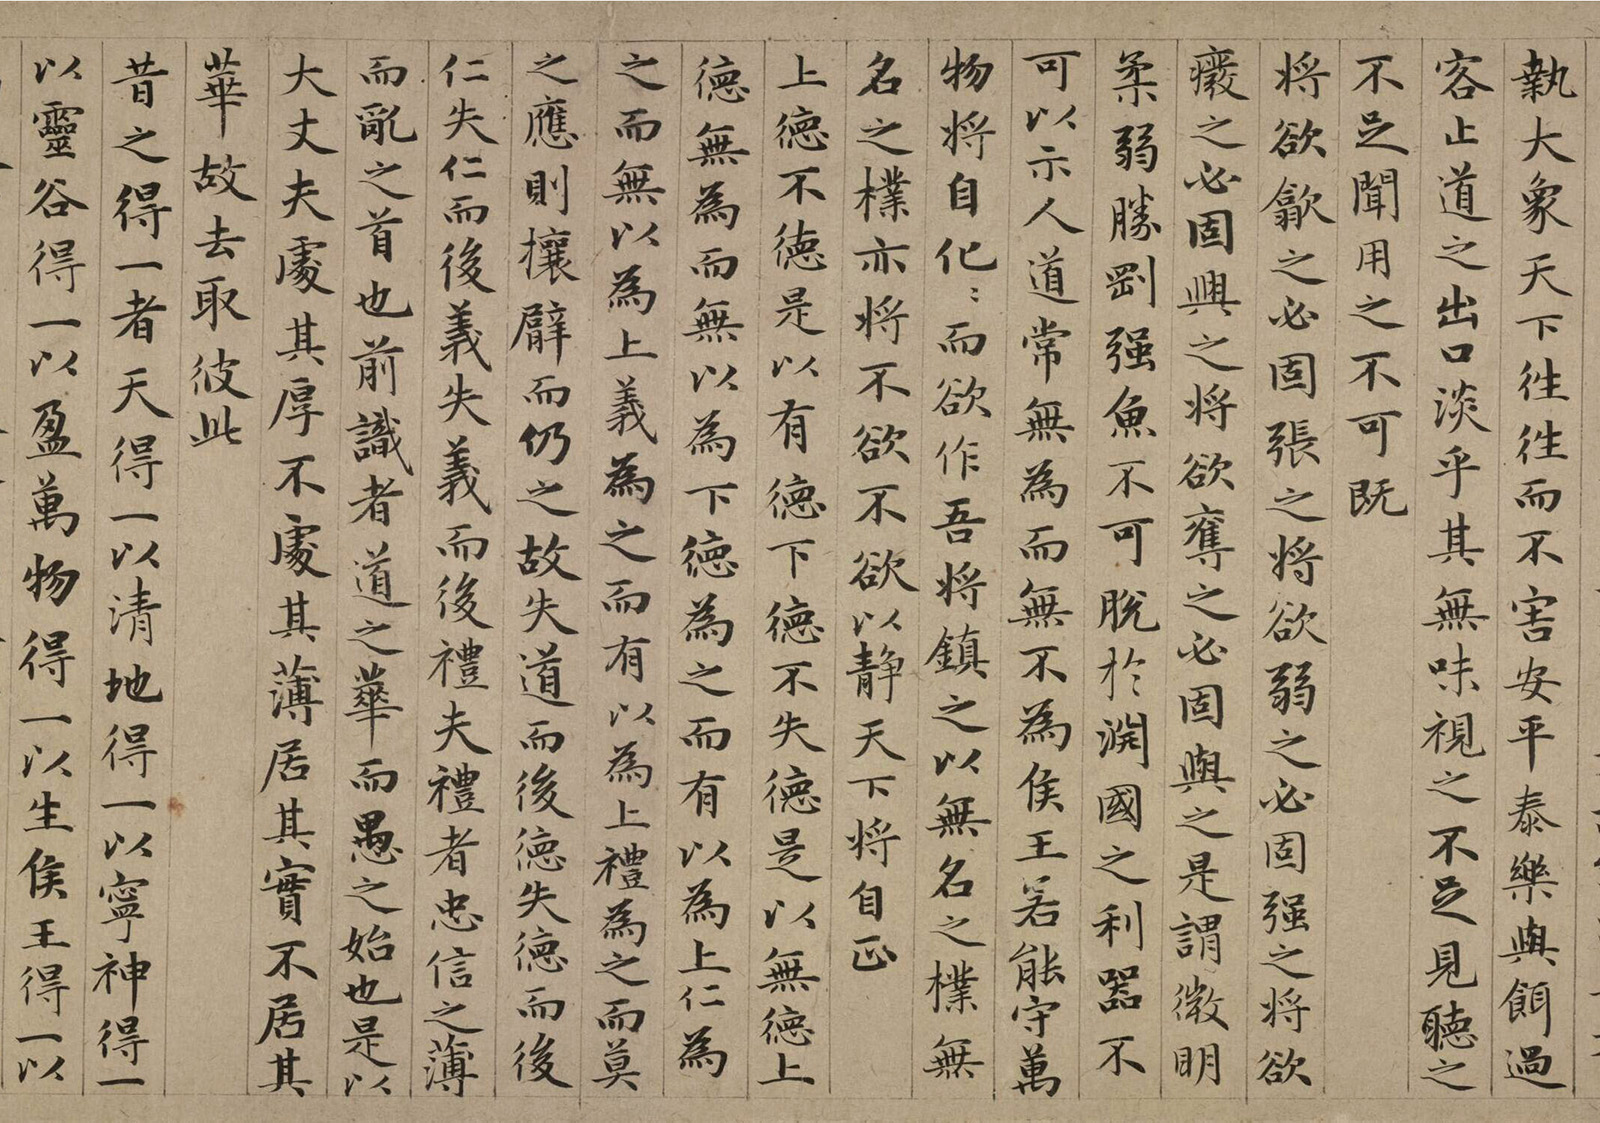 執大象天下徃徃而不害安平泰樂與餌過
客止道之出口淡乎其無味視之不足見聽之
不足聞用之不可既
将欲歙之必固張之将欲弱之必固强之将欲
癈之必固興之将欲奪之必固與之是謂微明
柔弱勝剛强魚不可脫於淵國之利器不
可以示人道常無為而無不為侯王若能守萬
物将自化〻而欲作吾将鎮之以無名之樸無
名之樸亦将不欲不欲以静天下将自正
上徳不徳是以有徳下徳不失徳是以無徳上
徳無為而無以為下徳為之而有以為上仁為
之而無以為上義為之而有以為上禮為之而莫
之應則攘臂而仍之故失道而後徳失徳而後
仁失仁而後義失義而後禮夫禮者忠信之薄
而亂之首也前識者道之華而愚之始也是以
大丈夫處其厚不處其薄居其實不居其
華故去取彼此
昔之得一者天得一以清地得一以寧神得一
以靈谷得一以盈萬物得一以生侯王得一以